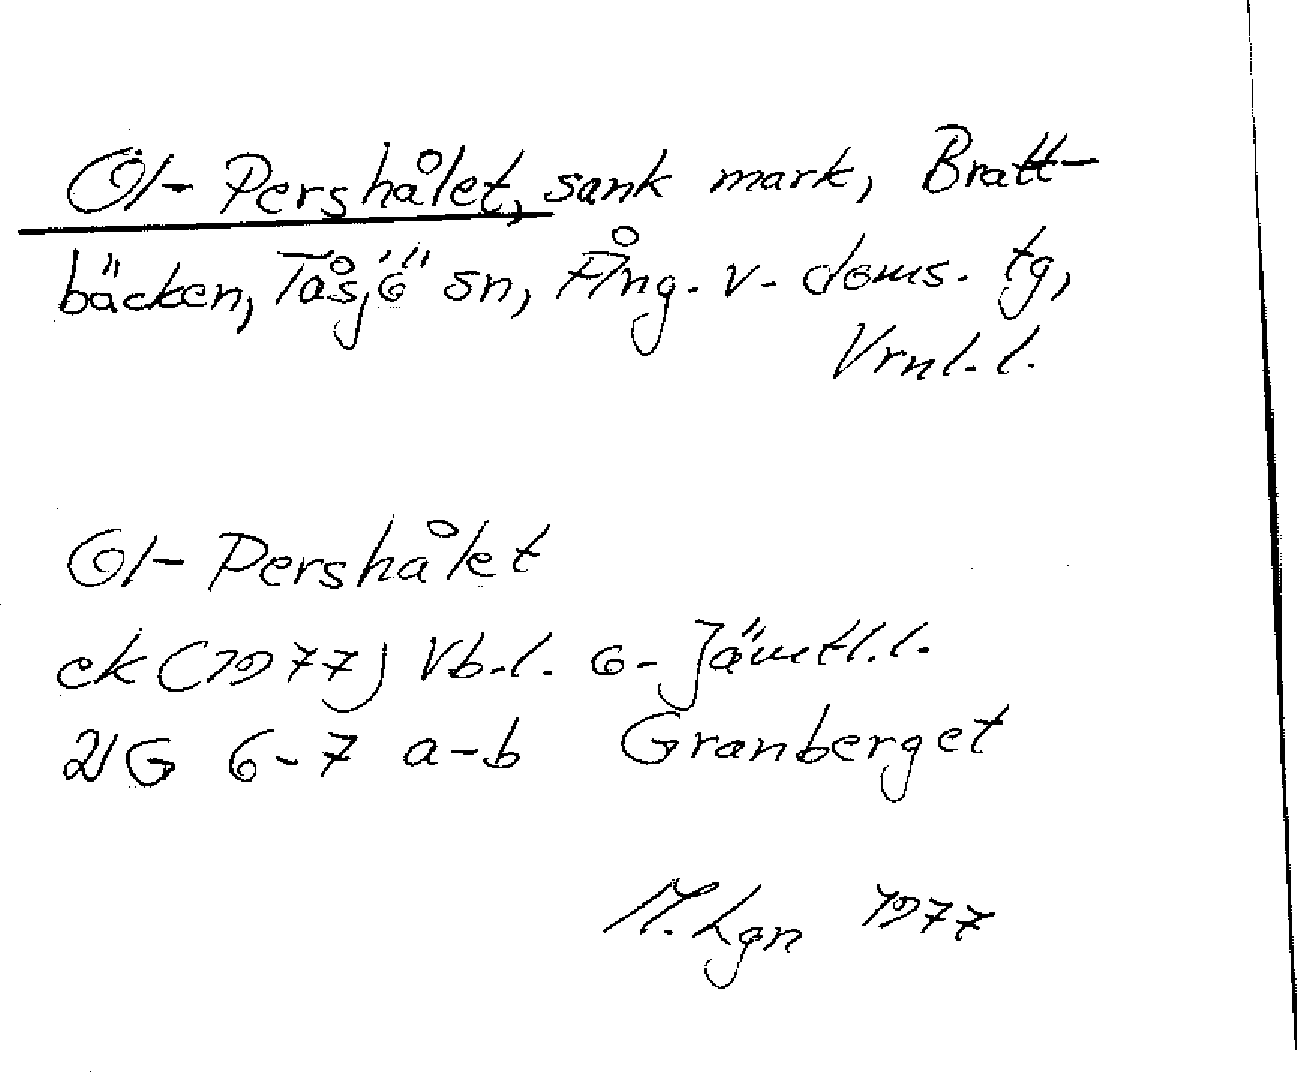 Öl-Pershålet, sank mark, Bratt-
bäcken, Tåsjö sn, Ång. v. doms. tg,
Vrnl. l.
Ol-Pershålet
ek (1977) Vb. l. o. Jämtl. l.
21G 6-7 a-b Granberget
M. Lgn 1977